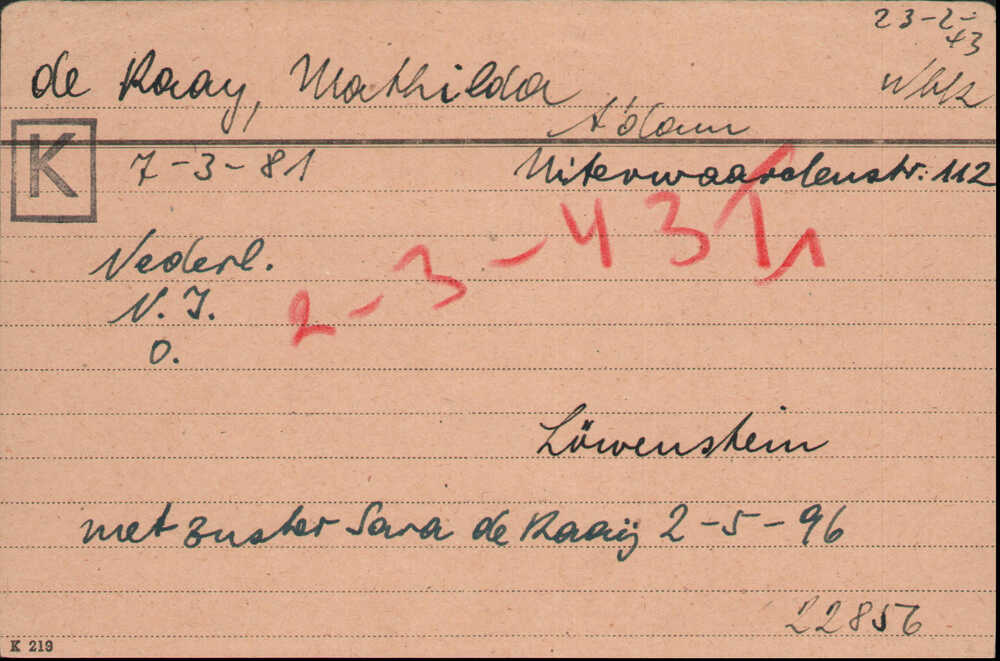 23-2-
43
de Raay, Mathilda
Wblk
A'dam
K
7-3-81
Uiterwaardenstr. 112
Nederl.
2-3-43
N. I.
O.
Löwenstein
met zuster Sara de Raaij 2-5-96
22856
K 219